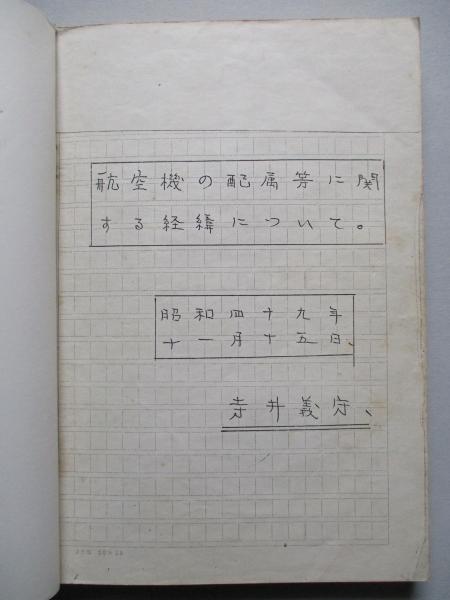 航空機の配属等に関
する経緯について。
昭和四十九年
十一月十五日、
寺井義守、